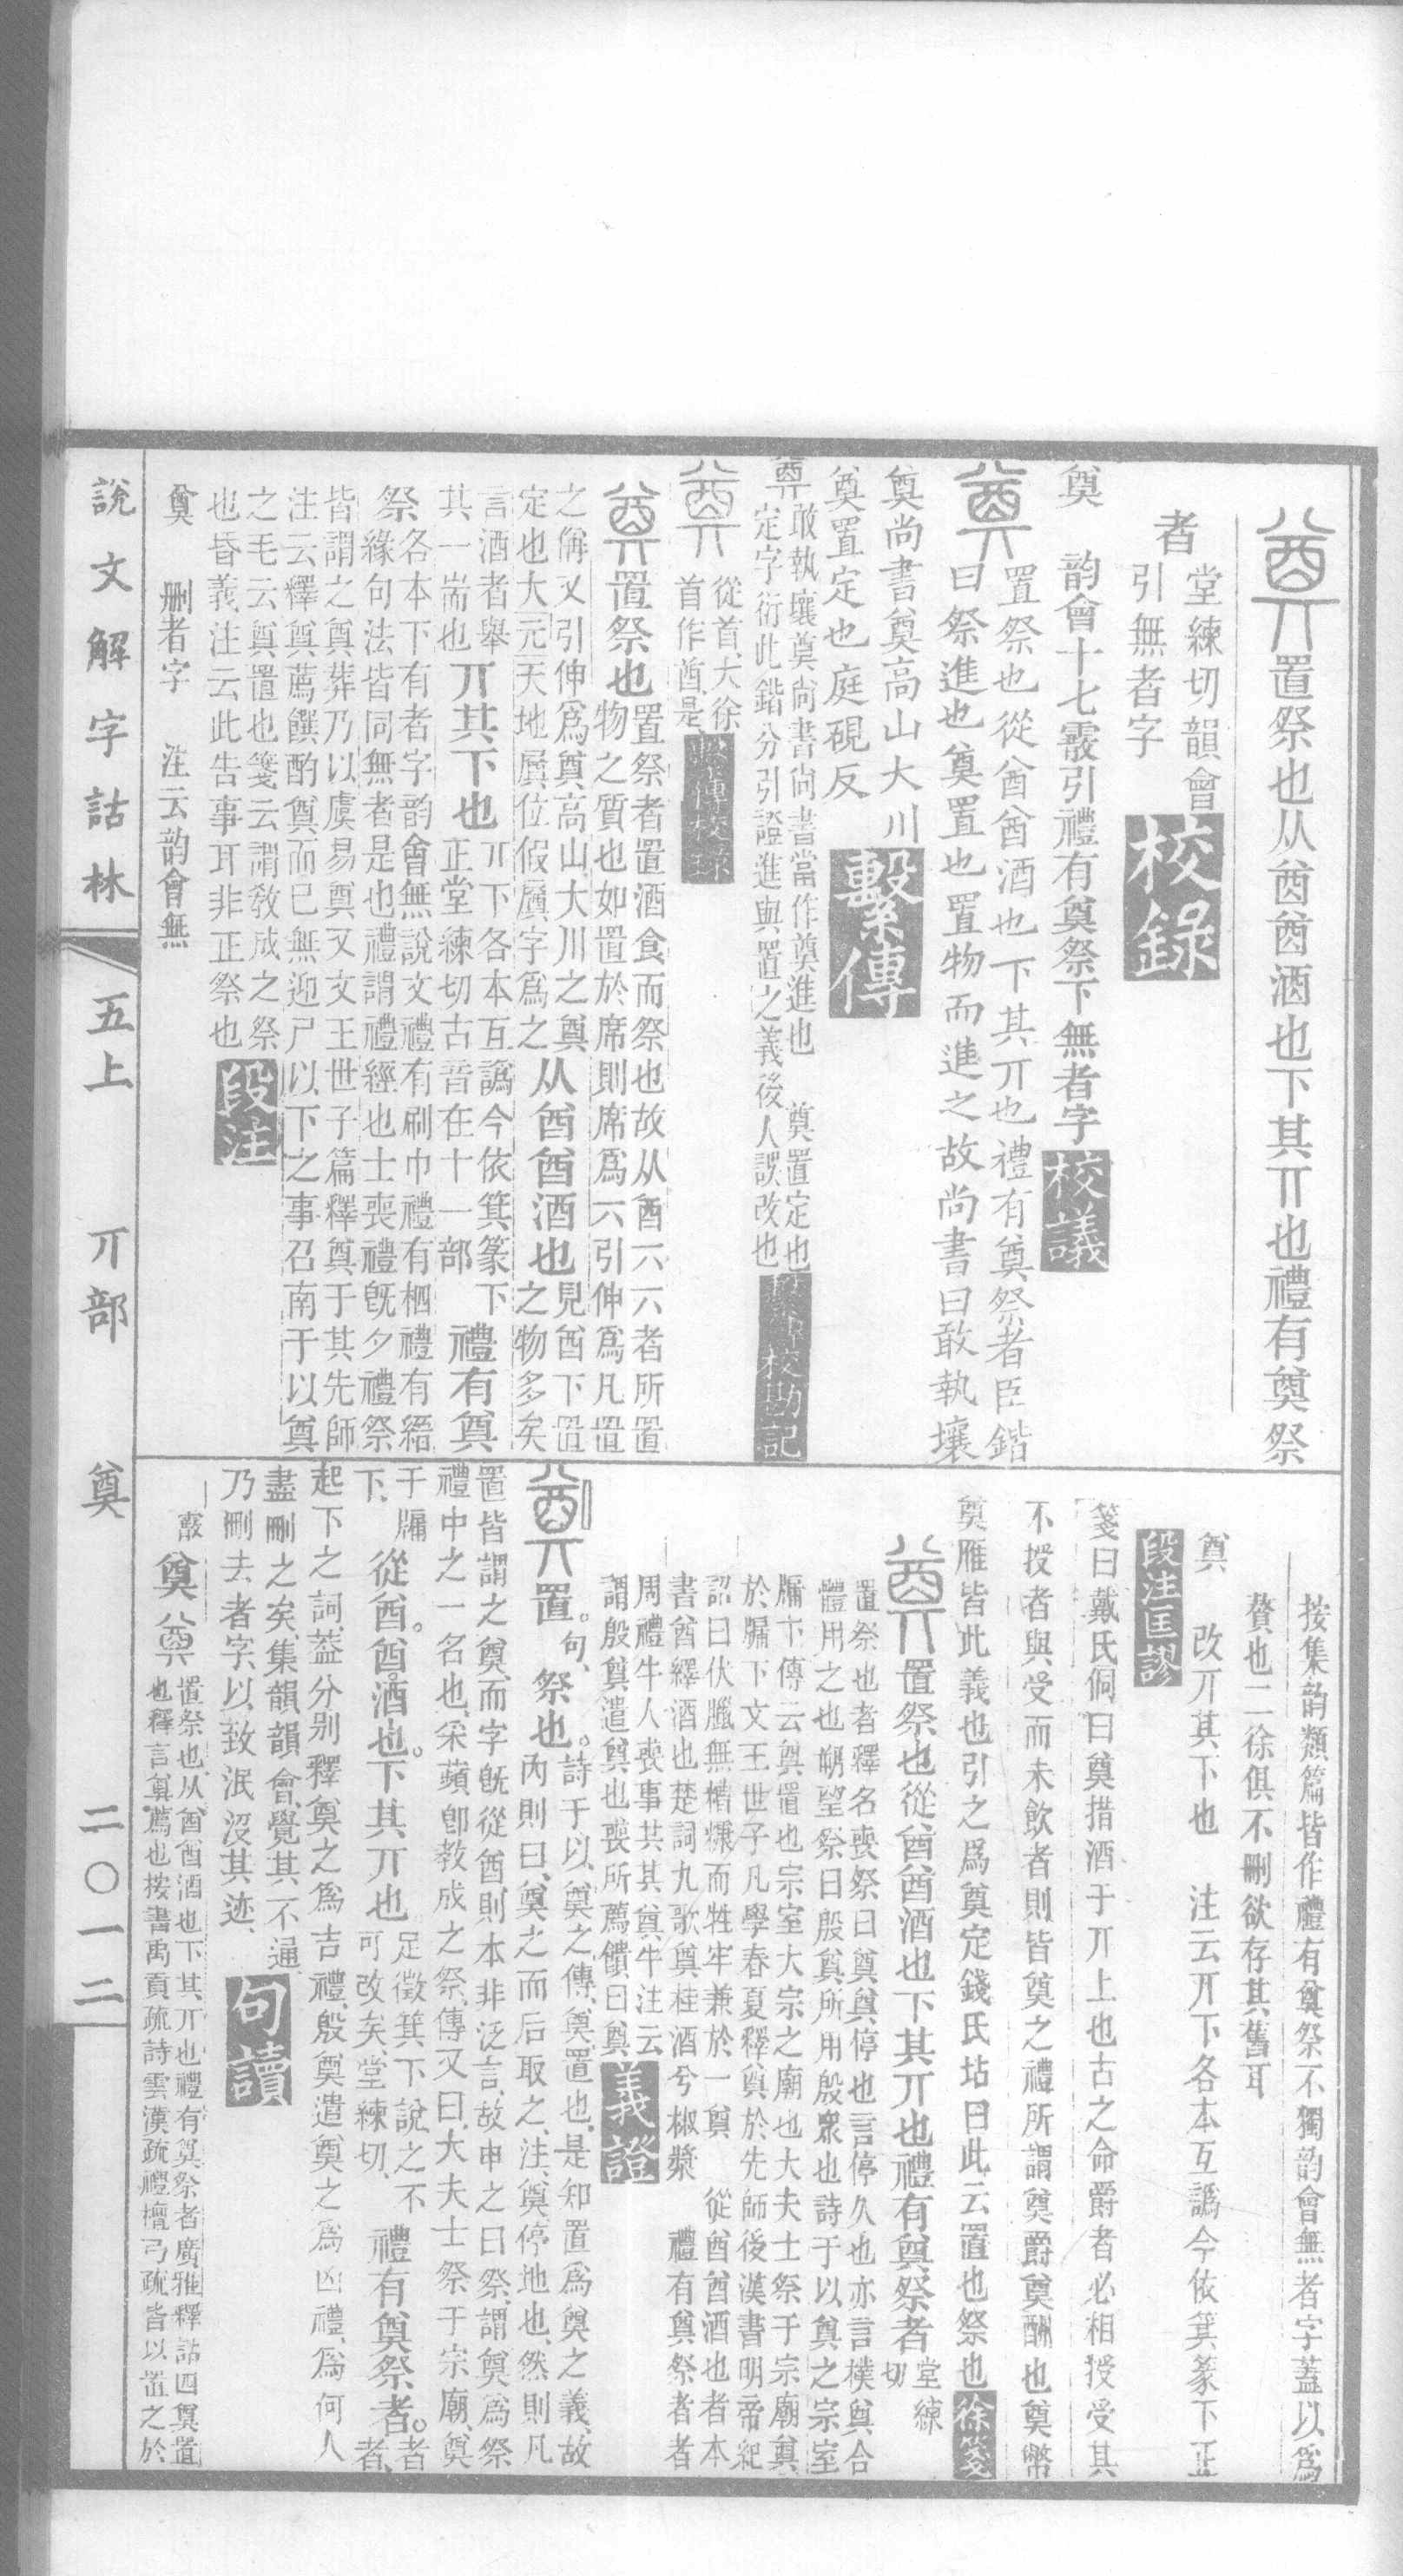 置祭也从酋酋酒也下其丌也禮有奠祭
者
堂練切韻會
引無者字
校錄
奠　韵會十七霰引禮有奠祭下無者字
校議
置祭也從酋酋酒也下其丌也禮有奠祭者臣鍇
曰祭進也奠置也置物而進之故尚書曰敢執壤
奠尚書奠高山大川
奠置定也庭硯反
繫傳
敢執壤奠尚書尚書當作奠進也　奠置定也
定字衍此鍇分引證進與置之義後人誤改也
校勘記
從首大徐
首作酋是
置祭也
置祭者置酒食而祭也故从酋丌丌者所置
物之質也如置於席則席爲丌引伸爲凡置
之偁又引伸爲奠高山大川之奠
定也大元天地奠位假奠字爲之
从酋酋酒也
見酋下置
之物多矣
言酒者舉
其一耑也
丌其下也
丌下各本互譌今依箕篆下
正堂練切古音在十一部
禮有奠
祭
各本下有者字韵會無說文禮有刷巾禮有柶禮有縉
緣句法皆同無者是也禮謂禮經也士喪禮旣夕禮祭
皆謂之奠葬乃以虞易奠又文王世子篇釋奠于其先師
注云釋奠薦饌酌奠而已無迎尸以下之事召南于以奠
之毛云奠置也箋云謂敎成之祭
也昏義注云此告事耳非正祭也
段注
奠　刪者字　注云韵會無
按集韵類篇皆作禮有奠祭不獨韵會無者字蓋以爲
贅也二徐俱不刪欲存其舊耳
奠　改丌其下也　注云丌下各本互譌今依箕篆下正
段注匡謬
箋曰戴氏侗曰奠措酒于丌上也古之命爵者必相授受其
不授者與受而未飮者則皆奠之禮所謂奠爵奠酬也奠幣
奠雁皆此義也引之爲奠定錢氏坫曰此云置也祭也
徐箋
置祭也從酋酋酒也下其丌也禮有奠祭者
堂練
切
置祭也者釋名喪祭曰奠奠停也言停久也亦言樸奠合
體用之也朔望祭曰殷奠所用殷衆也詩于以奠之宗室
牖下傳云奠置也宗室大宗之廟也大夫士祭于宗廟奠
於牖下文王世子凡學春夏釋奠於先師後漢書明帝紀
詔曰伏臘無糟糠而牲牢兼於一奠　從酋酋酒也者本
書酋繹酒也楚詞九歌奠桂酒兮椒漿　禮有奠祭者者
周禮牛人喪事共其奠牛注云
謂殷奠遣奠也喪所薦饋曰奠
義證
置。句、祭也。
詩于以奠之、傳、奠、置也、是知置爲奠之義、故
內則曰、奠之而后取之、注、奠、停地也、然則凡
置皆謂之奠、而字旣從酋、則本非泛言、故申之曰祭、謂奠爲祭
禮中之一名也、采蘋卽教成之祭、傳又曰、大夫士祭于宗廟、奠
于牖
下、
從酋。酋。酒也。下其丌也
足徵箕下說之不
可改矣、堂練切、
禮有奠祭者。
者
者、
起下之詞、蓋分别釋奠之爲吉禮、殷奠遣奠之爲凶禮、爲何人
盡刪之矣、集韻韻會、覺其不通、
乃刪去者字、以致泯沒其迹、
句讀
奠
置祭也从酋酋酒也下其丌也禮有奠祭者廣雅釋詁四奠置
也釋言奠薦也按書禹貢疏詩雲漢疏禮檀弓疏皆以置之於
說文解字詁林　五上　丌部　奠　二〇一二